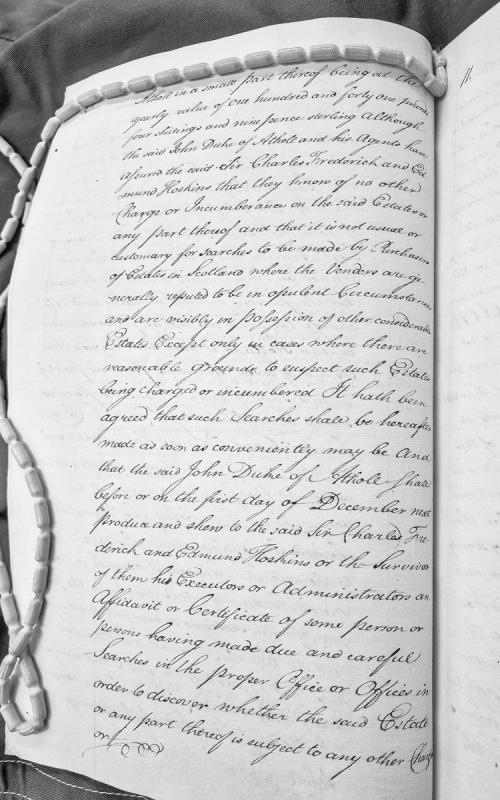 Atholl in a small part thereof being at the
yearly value of one hundred and forty one pounds
four shillings and nine pence sterling Although
the said John Duke of Atholl and his Agents have
assured the said Sir Charles Frederick and Ed
mund Hoskins that they know of no other
Charge or Incumberance on the said Estates or
any part thereof and that it is not usual or
customary for searches to be made by Purchasers
of Estates in Scotland where the Venders are ge-
nerally reputed to be in opulent Circumstances
and are visibly in possession of other considerable
Estates Except only in cases where there are
reasonable grounds to suspect such Estates
being charged or incumbered It hath been
agreed that such Searches shall be hereafter
made as soon as conveniently may be And
that the said John Duke of Atholl shall
before or on the first day of December next
produce and shew to the said Sir Charles Fre-
derich and Edmund Hoskins or the Survivor
of them his Executors or Administrators an
Affidavit or Certificate of some person or
persons having made due and careful
Searches in the proper Office or Offices in
order to discover whether the said Estate
or any part thereof is subject to any other Charge
or
11.